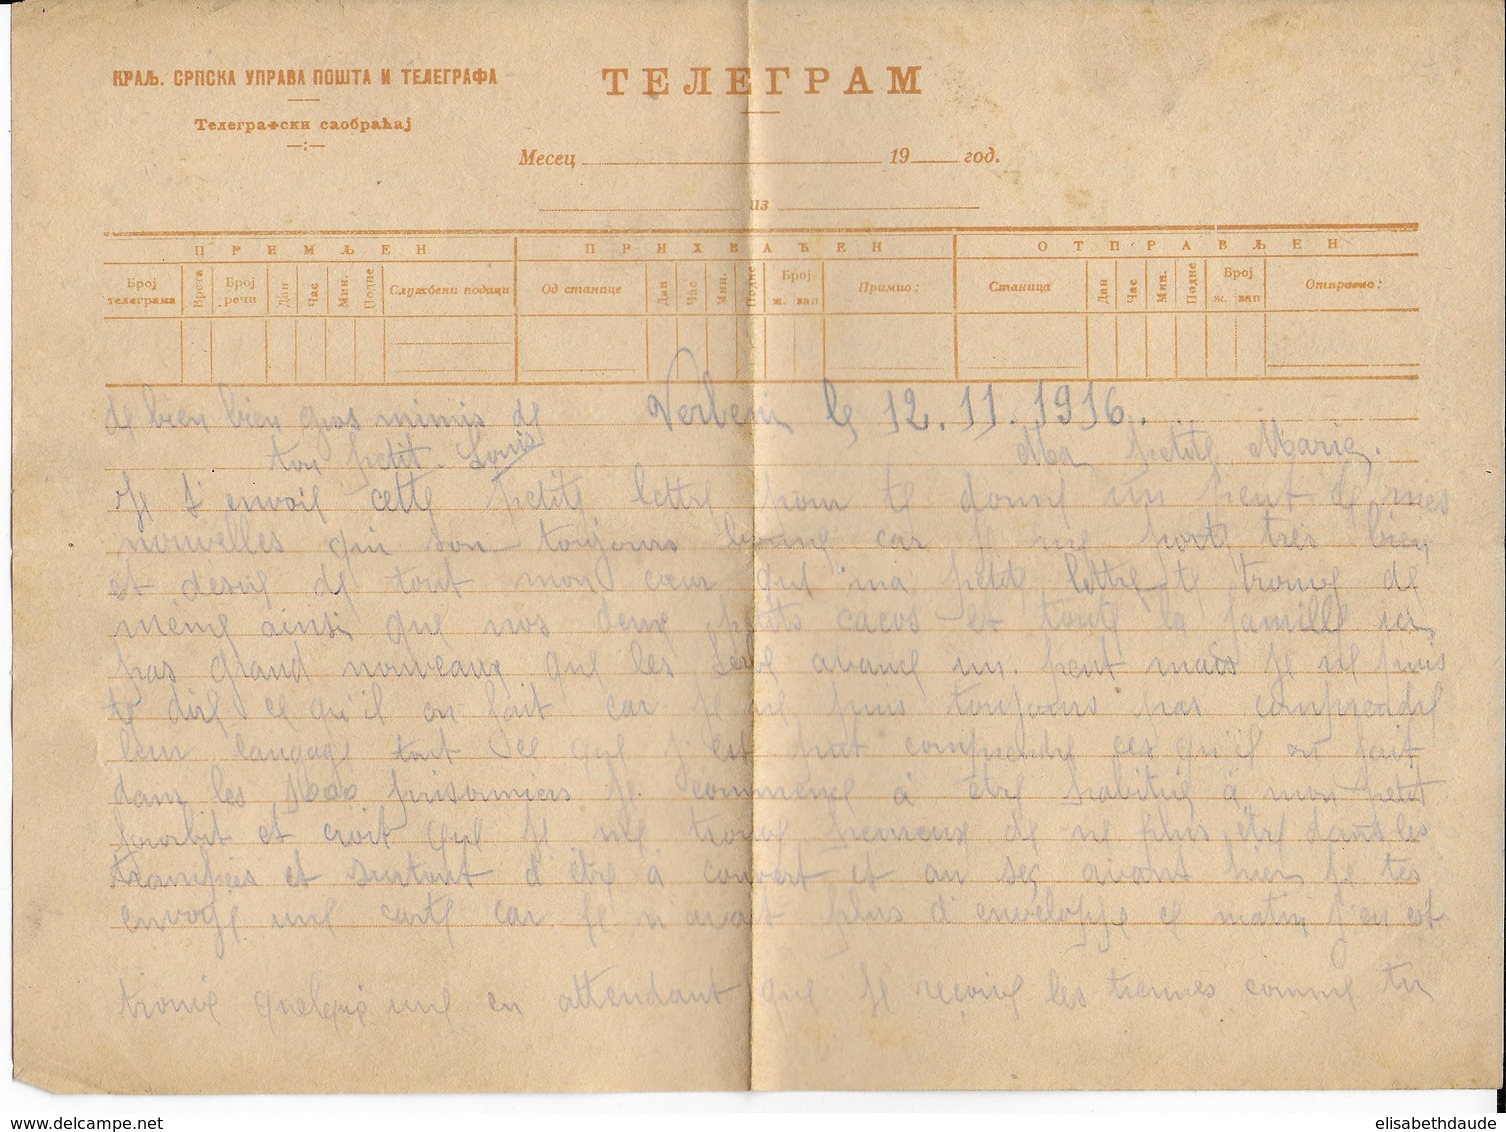 КРАЉ. СРПСКА УПРАВА ПОШТА И ТЕЛЕГРАФА
Телеграфски саобраћај
ТЕЛЕГРАМ
Месец 19 год.
из
ПРИМЉЕН ПРИХВАЋЕН ОТПРАВЉЕН
Број телеграма Врста Број речи Дан Час Мин. Подне Службени подаци Од станице Дан Час Мин. Подне Број ж. зап Примио: Станица Дан Час Мин. Подне Број ж. зап Отправио:
de bien bien gros mimis de
ton petit Louis
Verbeni le 12.11.1916.
Ma petite Marie.
Je t'envoie cette petite lettre pour te donne un peut de mes
nouvelles qui son toujours bonne car je me porte très bien
et désire de tout mon cœur que ma petite lettre te trouve de
même ainsi que nos deux petits cacos et toute la famille ici
pas grand nouveaux que les Serbe avance un peut mais je ne puis
te dire ce qu'il on fait car je ne puis toujours pas comprendre
leur langage tout ce que j'est put comprendre ces qu'il on fait
dans les prisonniers je commence à être habitué à mon petit
et croit que je me trouve heureux de ne plus être dans les
et surtout d'être à couvert et au sec avant hier je tes
envoye une carte car je n'avait plus d'enveloppe ce matin j'en est
trouvé quelque une en attendant que je reçoive les tiennes comme tu
www.delcampe.net
elisabethdaude